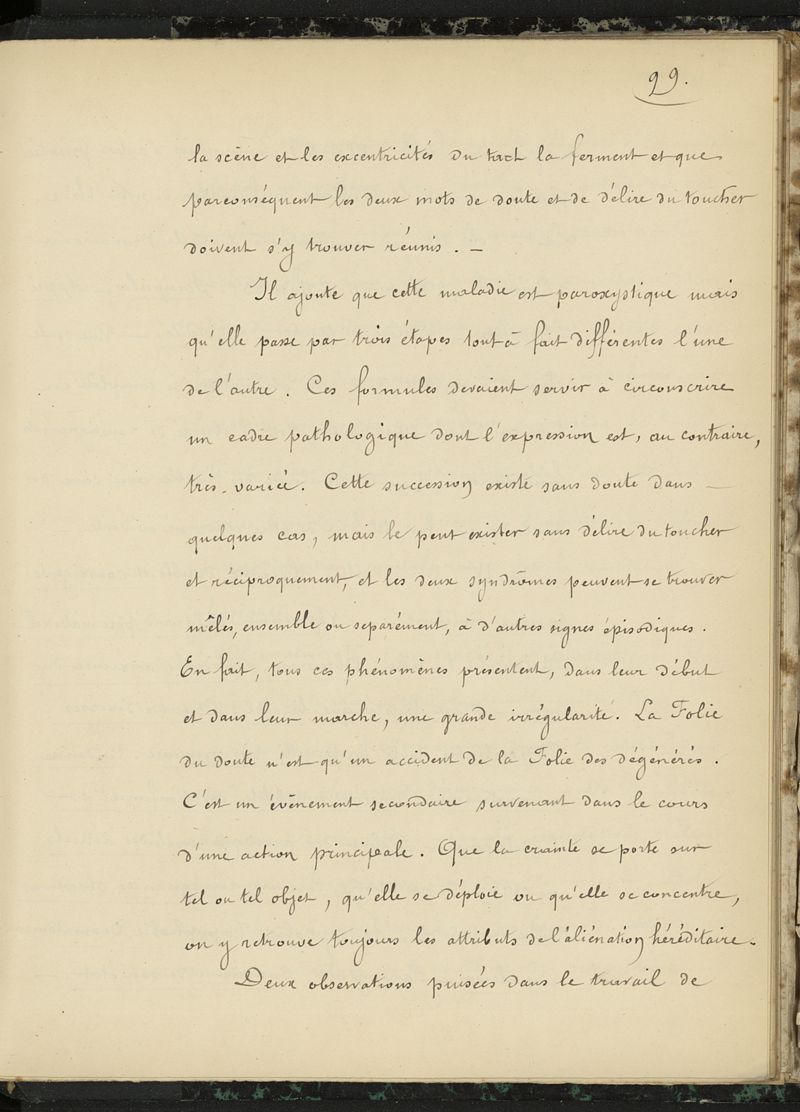 99.
la scène et les excentricités du tact la ferment et que
parconséquent les deux mots de doute et de délire du toucher
doivent s'y trouver réunis. —
Il ajoute que cette maladie est paroxystique mais
qu'elle passe par trois étapes tout à fait différentes l'une
de l'autre. Ces formules devaient servir à circonscrire
un cadre pathologique dont l'expression est, au contraire,
très-variée. Cette succession existe sans doute dans —
quelques cas, mais le peut exister sans délire du toucher
et réciproquement, et les deux syndrômes peuvent se trouver
mêlés, ensemble ou separément, à d'autres signes épisodiques.
En fait, tous ces phénomènes présentent, dans leur début
et dans leur marche, une grande irrégularité. La Folie
du doute n'est qu'un accident de la Folie des dégénérés.
C'est un évènement secondaire survenant dans le cours
d'une action principale. Que la crainte se porte sur
tel ou tel objet, qu'elle se déploie ou qu'elle se concentre,
on y retrouve toujours les attributs de l'aliénation héréditaire.
Deux observations puisées dans le travail de